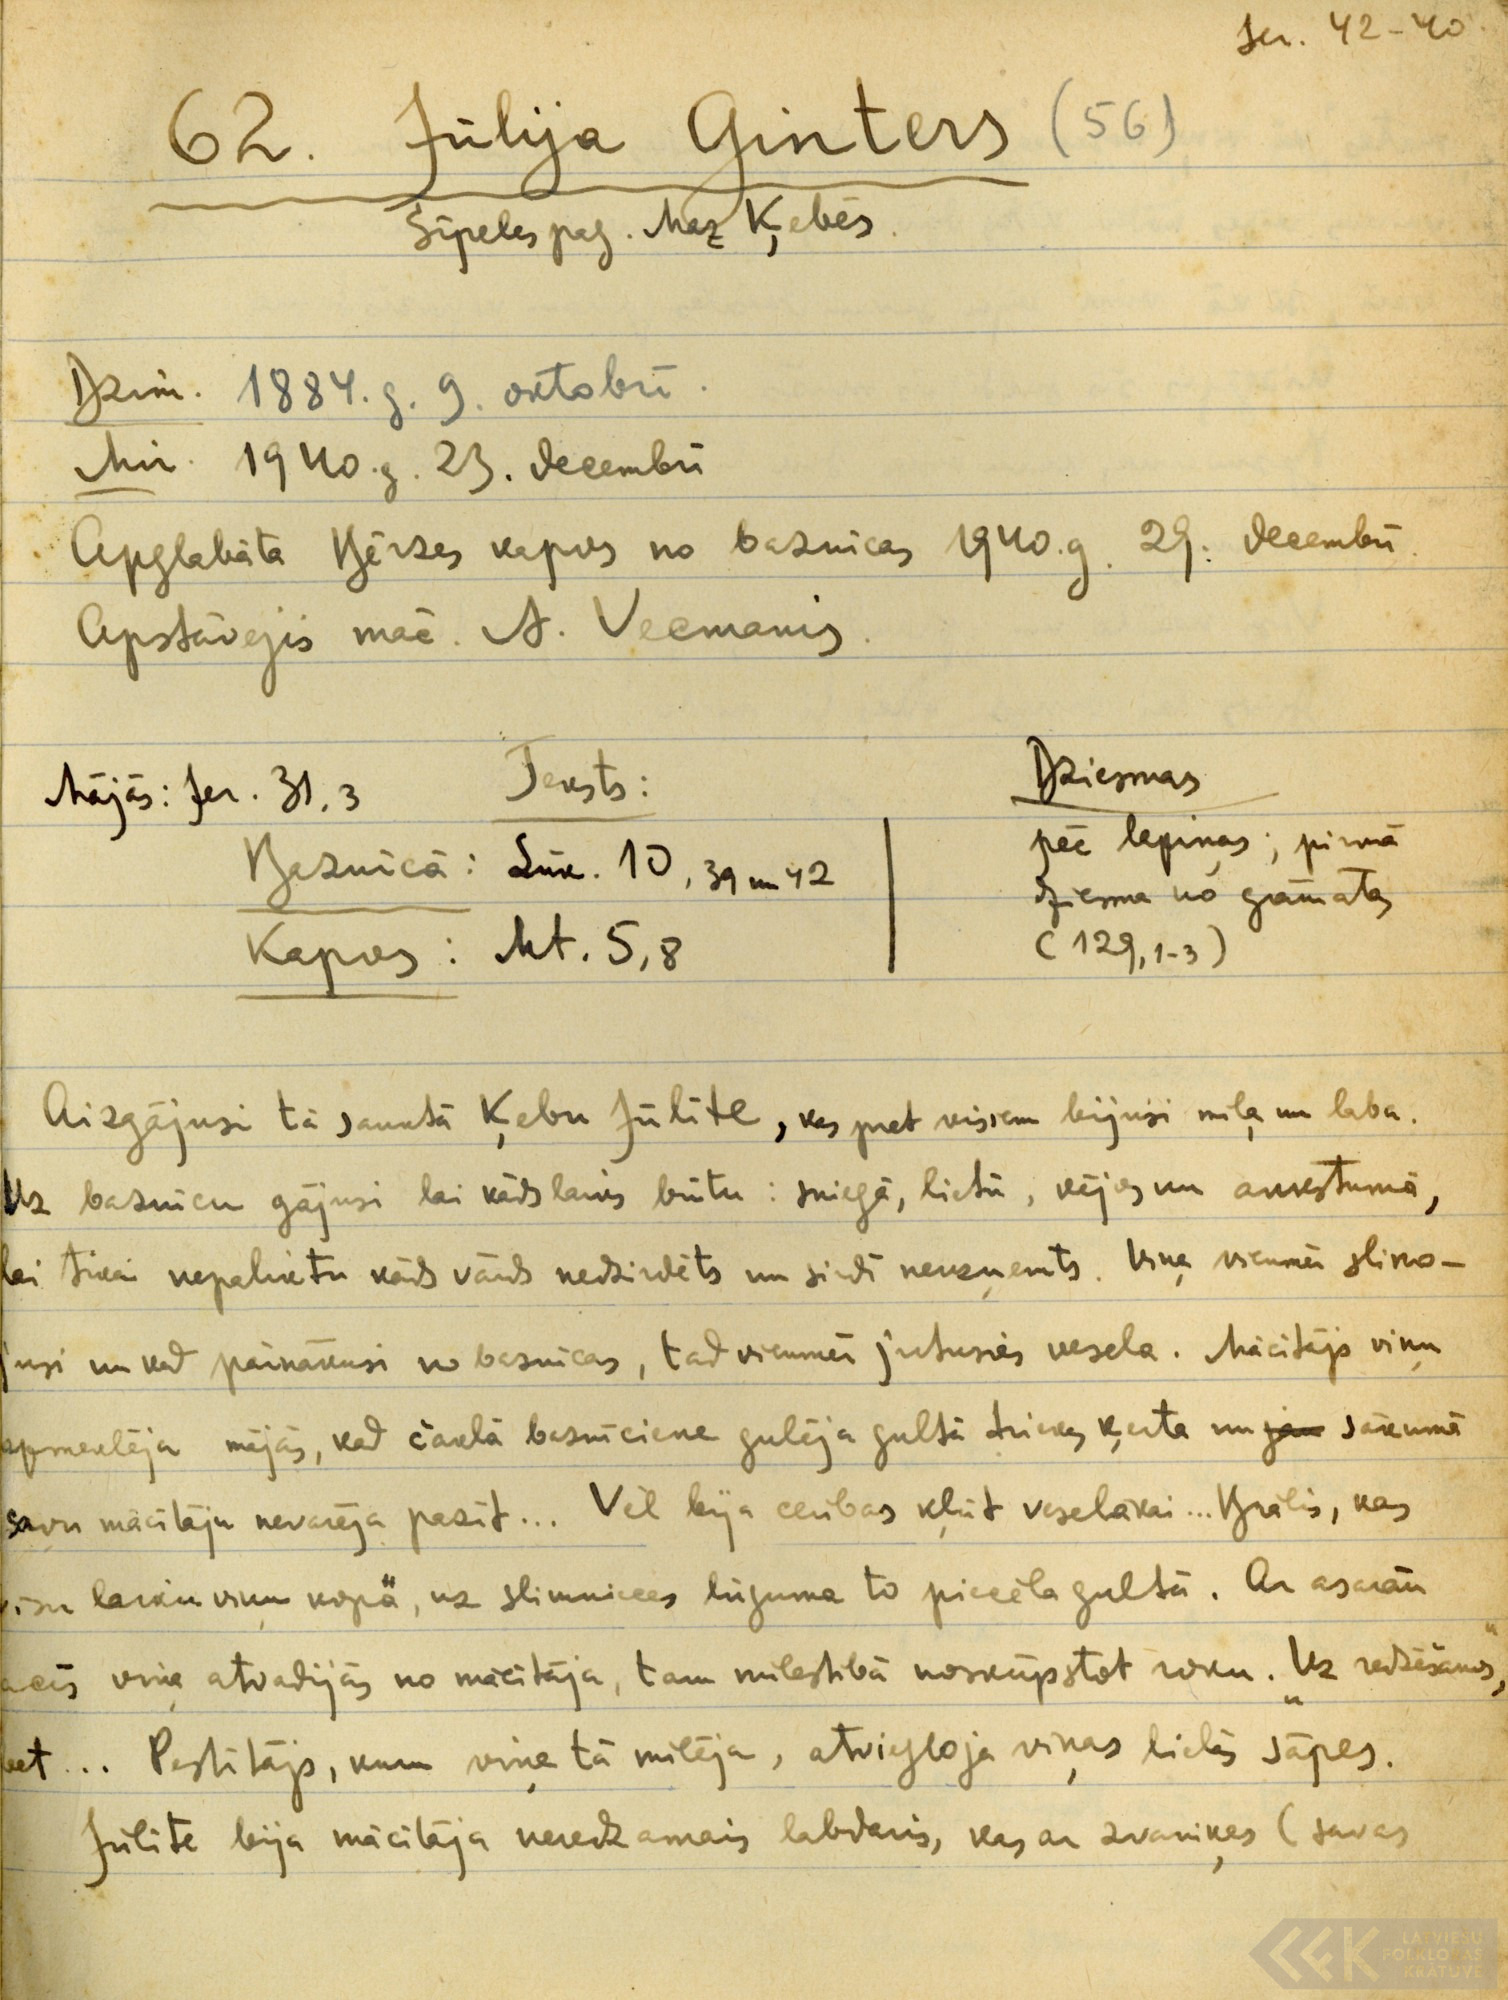 Jer. 42-40.
62. Jūlija Ginters (56)
Šīpeles pag. Maz Ķebēs.
Dzim. 1884. g. 9. oktobrī.
Mir. 1940. g. 23. decembrī
Apglabāta Bērzes kapos no baznīcas 1940. g. 29. decembrī.
Apstāvejis māc. A. Vecmanis.
Mājās: Jer. 31,3 Teksts: Dziesmas
Baznīcā: Lūk. 10, 39 un 42
Kapos: Mt. 5,8
pēc lapiņas; pirmā
dziesma no grāmatas
(129, 1-3)
Aizgājusi tā sauktā Ķebu Jūlīte, kas pret visiem bijusi mīļa un laba.
Uz baznīcu gājusi lai kāds laiks būtu: sniegā, lietū, vējos un aukstumā,
lai tikai nepaliktu kāds vārds nedzirdēts un sirdī neuzņemts. Viņa vienmēr slimo-
jusi un kad pārnākusi no baznīcas, tad vienmēr jutusies vesela. Mācītājs viņu
apmeklēja mājās, kad čaklā baznīciene gulēja gultā triekas ķerta un jau sākumā
savu mācītāju nevarēja pazīt... Vēl bija cerības kļūt veselākai... Brālis, kas
visu laiku viņu kopā, uz slimnieces lūguma to piecēla gultā. Ar asarām
acīs viņa atvadījās no mācītāja, tam mīlestībā noskūpstot roku. "Uz redzēšanos",
bet... Pestītājs, kuru viņa tā mīlēja, atviegloja viņas lielās sāpes.
Jūlīte bija mācītāja neredzamais labdaris, kas ar zvaniķes (savas
LATVIEŠU
FOLKLORAS
KRĀTUVE